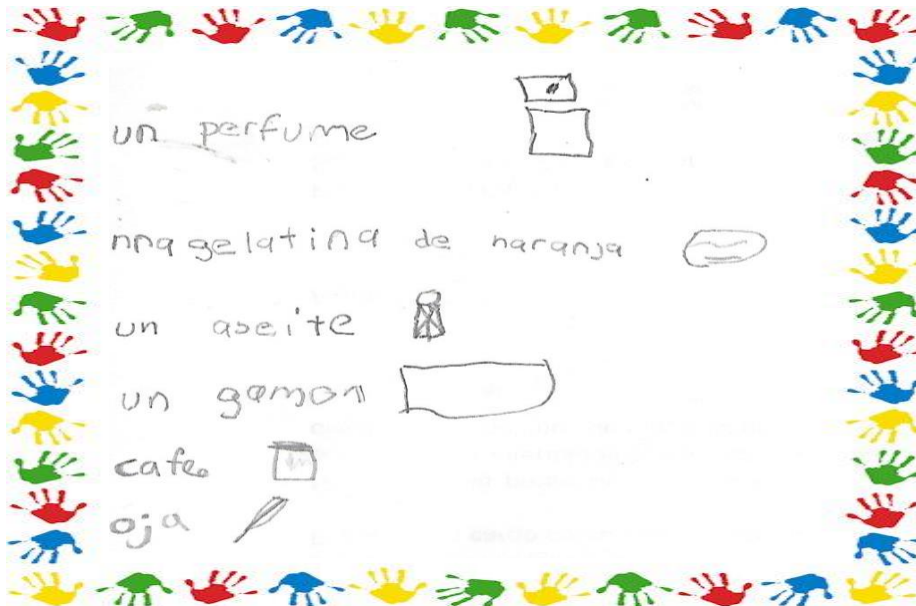 un perfume
nna gelatina de naranja
un aseite
un gamon
cafe
oja